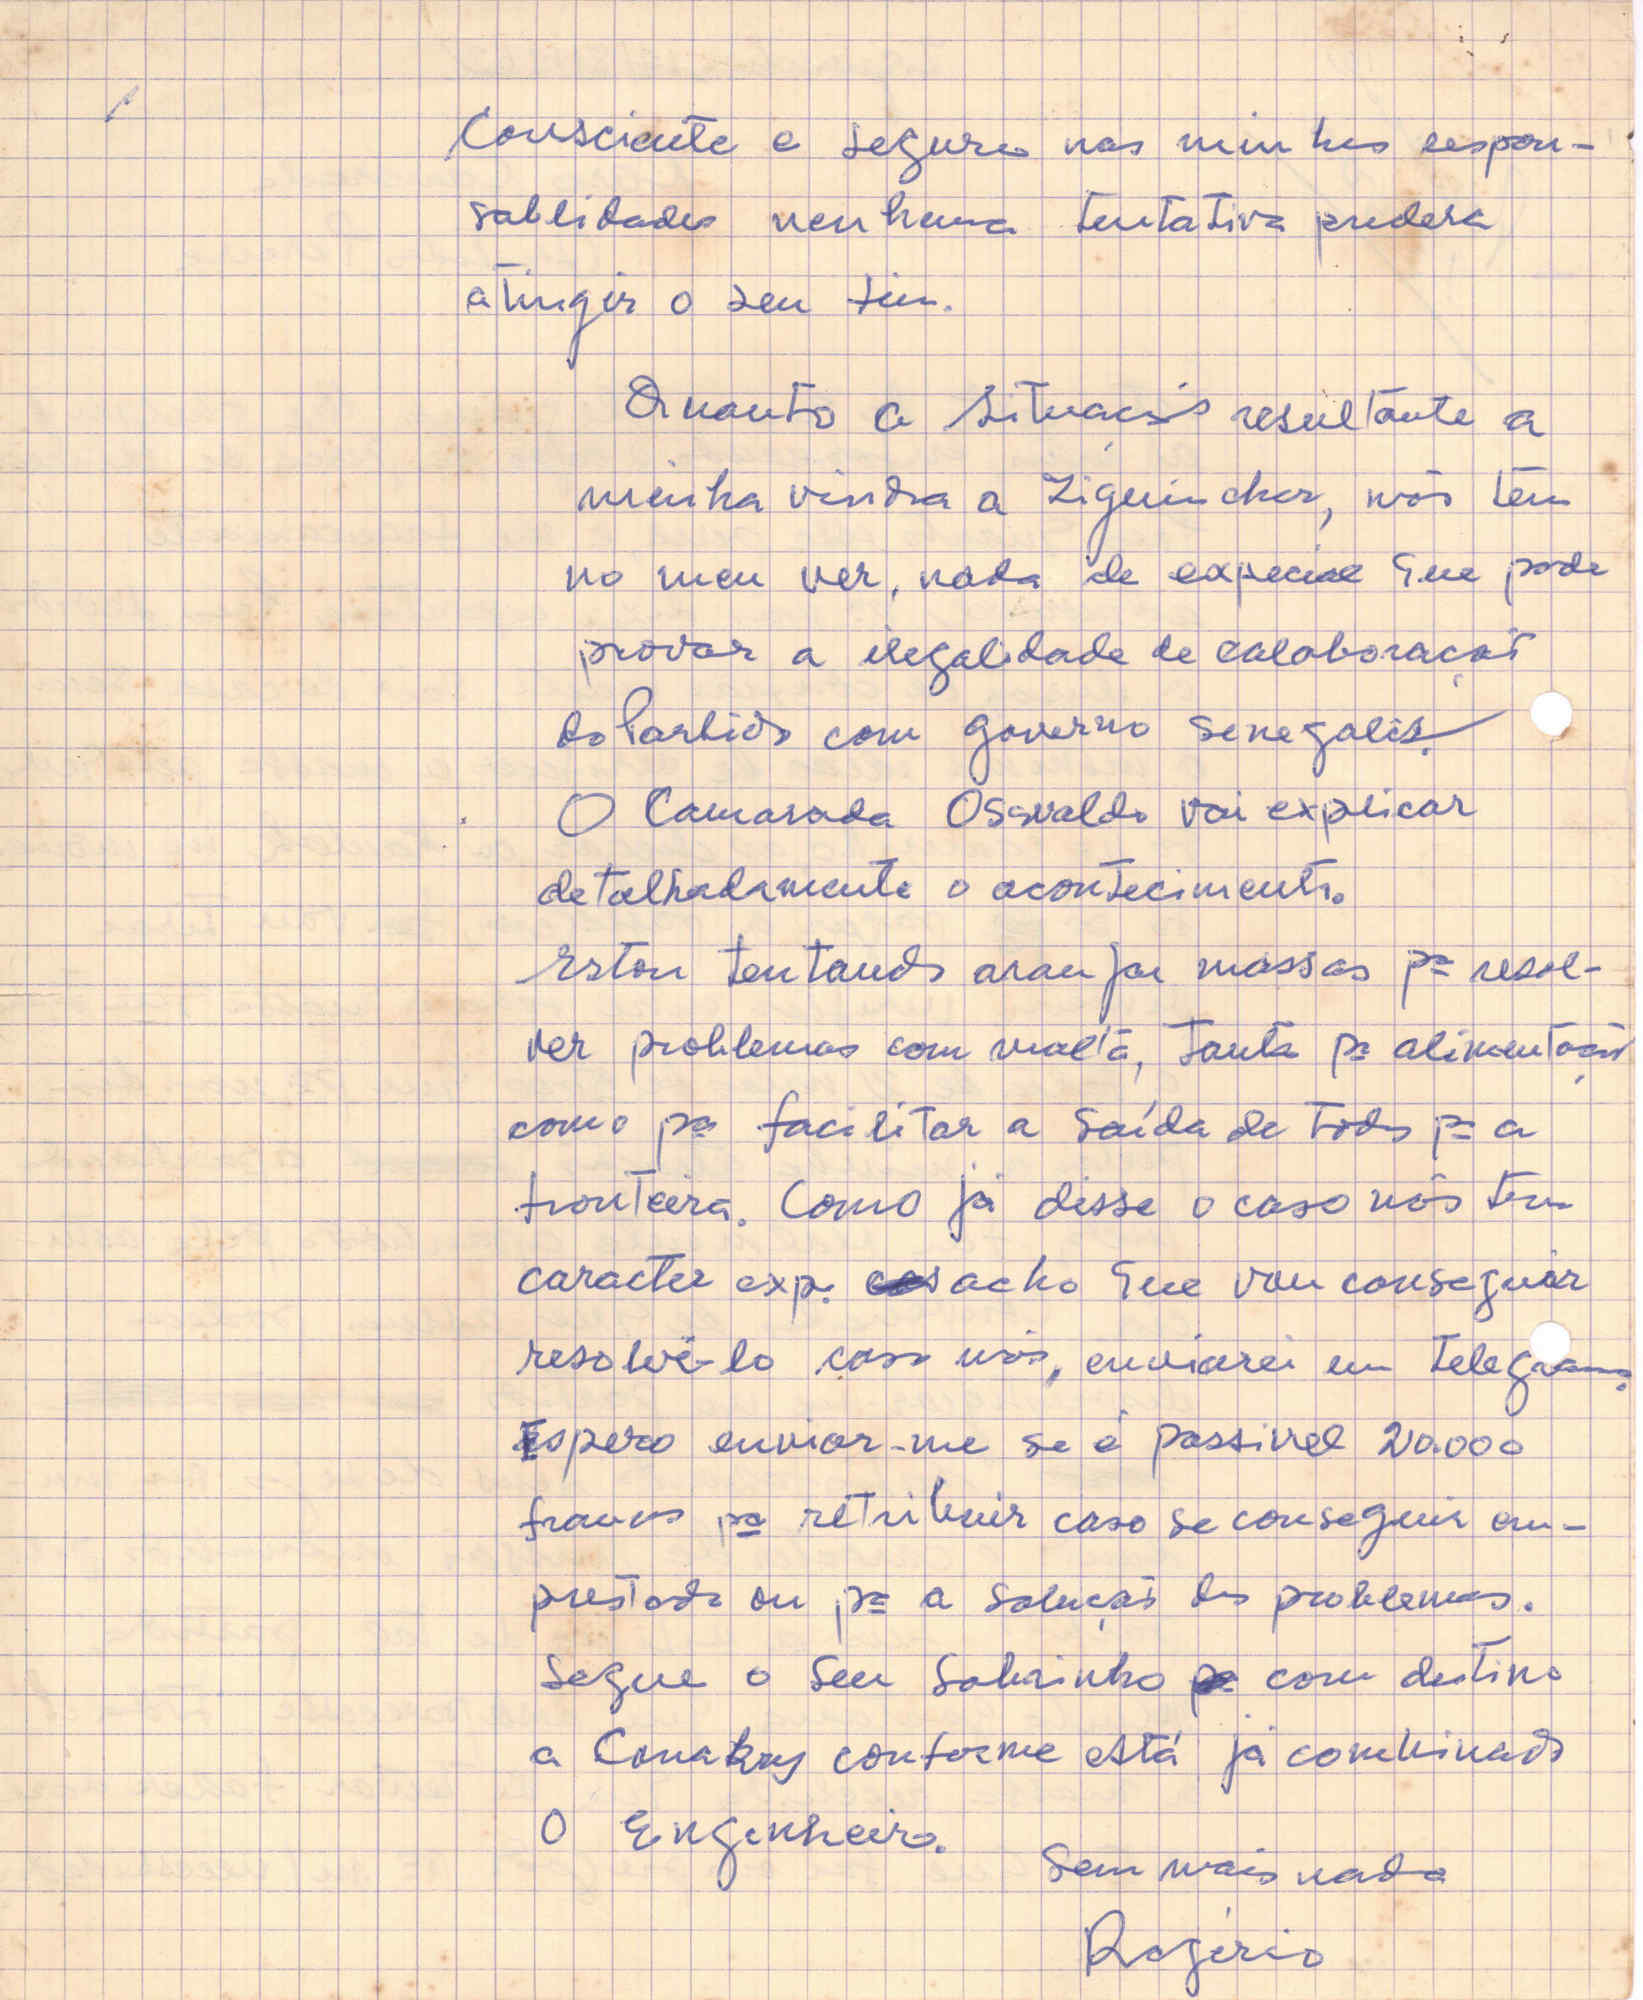 Consciente e seguro nas minhas respon-
sablidades nenhuma tentativa pudera
atingir o seu fim.
Quanto a situação resultante a
minha vinda a Ziguinchor, não tem
no meu ver, nada de especial que pode
provar a ilegalidade de colaboração
do Partido com governo senegalês.
O Camarada Osvaldo vai explicar
detalhadamente o acontecimento.
Estou tentando aranjar massas pª resol-
ver problemas com malta, tanto pª alimentação
como pª facilitar a saída de todos pª a
fronteira. Como já disse o caso não tem
caracter exp. acho que vou conseguir
resolvê-lo caso não, enviarei um telegrama.
Espero enviar-me se é possivel 20.000
francos pª retribuir caso se conseguir em-
prestado ou pª a solução dos problemas.
Segue o seu sobrinho com destino
a Conakry conforme está já combinado
O Engenheiro.
Sem mais nada
Rogério